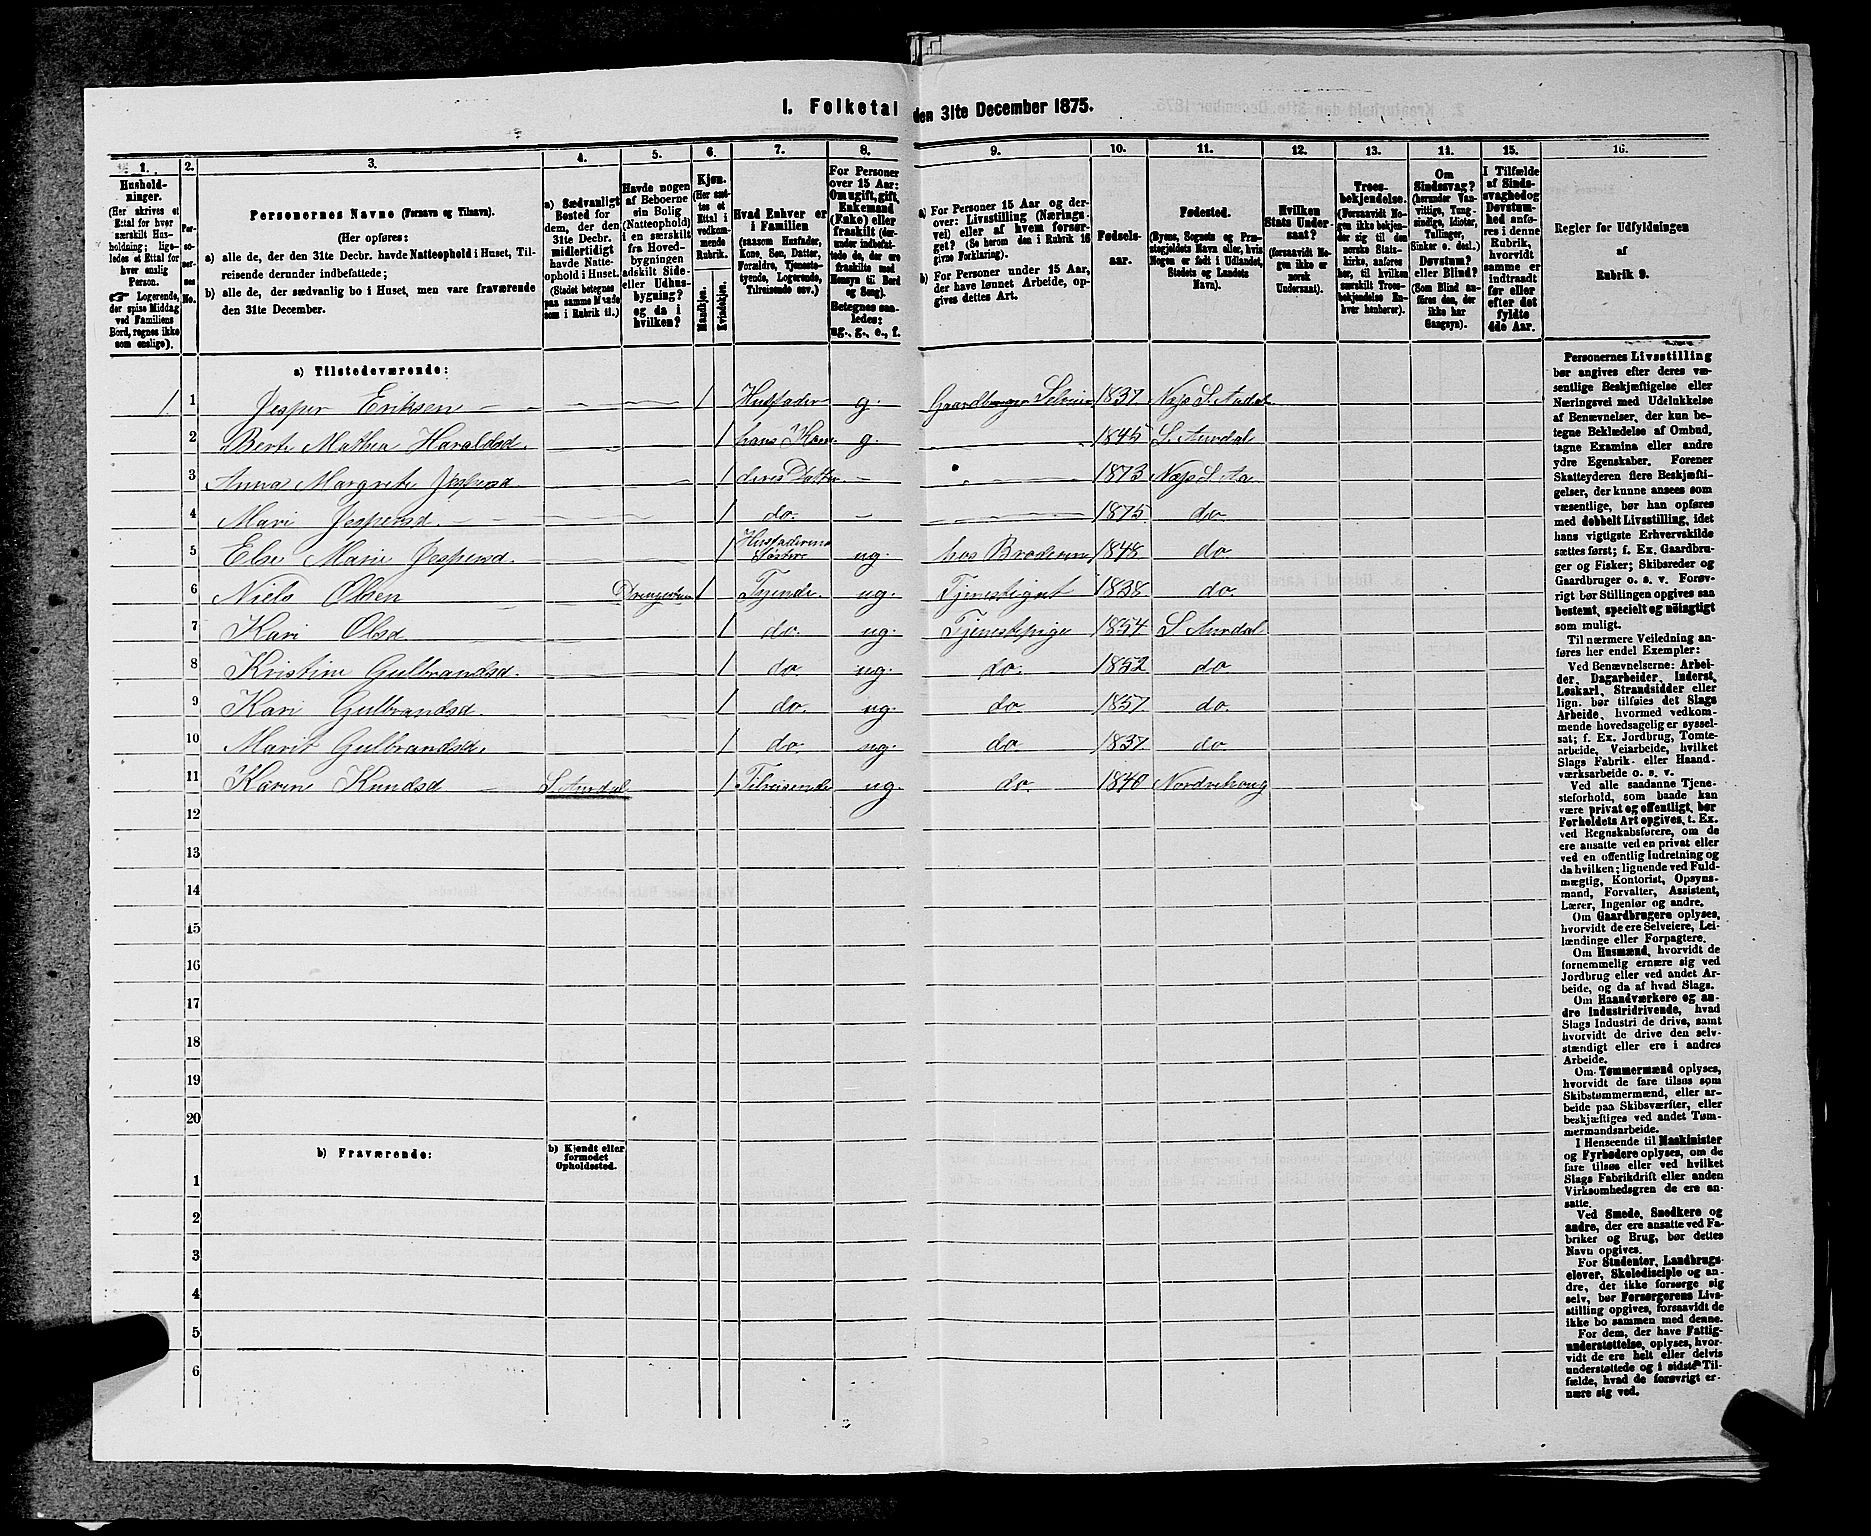 I. Folketal den 31te December 1875.
1. 2. 3. 4. 5. 6. 7. 8. 9. 10. 11. 12. 13. 14. 15. 16.
Hushold-
ninger.
(Her skrives et
Ettal for hver
særskilt Hus-
holdning; lige-
ledes et Ettal for
hver enslig
Person.
☞ Logerende,
der spise Middag
ved Familiens
Bord, regnes ikke
som enslige).
Per-
so-
ner-
nes
No.
Personernes Navne (Fornavn og Tilnavn).
(Her opføres:
a) alle de, der den 31te Decbr. havde Natteophold i Huset, Til-
reisende derunder indbefattede;
b) alle de, der sædvanlig bo i Huset, men vare fraværende
den 31te December.
a) Sædvanligt
Bosted for
dem, der den
31te Decbr.
midlertidigt
havde Natte-
ophold i Huset.
(Stedet betegnes
paa samme Maade
som i Rubrik 11.)
Havde nogen
af Beboerne
sin Bolig
(Natteophold)
i en særskilt
fra Hoved-
bygningen
adskilt Side-
eller Udhus-
bygning?
og da i
hvilken?
Kjøn.
(Her sæt-
tes et
Ettal i
vedkom-
mende
Rubrik.
Mandkjøn.
Kvindekjøn.
Hvad Enhver er
i Familien
(saasom Husfader,
Kone, Søn, Datter,
Forældre, Tjeneste-
tyende, Logerende,
Tilreisende osv.)
For Personer
over 15 Aar:
Om ugift, gift,
Enkemand
(Enke) eller
fraskilt (der-
under indbefat-
tede de, der ere
fraskilte med
Hensyn til Bord
og Seng).
Betegnes saa-
ledes:
ug., g., e., f.
a) For Personer 15 Aar og der-
over: Livsstilling (Nærings-
vei) eller af hvem forsør-
get? (Se herom den i Rubrik 16
givne Forklaring).
b) For Personer under 15 Aar,
der have lønnet Arbeide, op-
gives dettes Art.
Fødsels-
aar.
Fødested.
(Byens, Sognets og Præ-
stegjeldets Navn eller, hvis
Nogen er født i Udlandet,
Stedets og Landets
Navn).
Hvilken
Stats Under-
saat?
(forsaavidt No-
gen ikke er
norsk
Undersaat).
Troes-
bekjendelse.
(Forsaavidt No-
gen ikke bekjen-
der sig til den
norske Stats-
kirke, anføres
her, til hvilken
særskilt Troes-
bekjendelse En-
hver henhører).
Om
Sindssvag?
(herunder Van-
vittige, Tung-
sindige, Idioter,
Tullinger,
Sinker o. desl.)
Døvstum?
eller Blind?
(Som Blind an-
føres den, der
ikke har
Gangsyn).
I Tilfælde
af Sinds-
svaghed og
Døvstum-
hed anfø-
res i denne
Rubrik,
hvorvidt
samme er
indtraadt
før eller
efter det
fyldte
4de Aar.
Regler for Udfyldningen
af
Rubrik 9.
a) Tilstedeværende:
1 1 Jesper Eriksen 1 Husfader g. Gaardbruger Selveier 1837 Næs S. Aurdal
2 Berte Mathea Haraldsd. 1 hans Kone g. 1845 S. Aurdal
3 Anna Margrete Jespersd. 1 deres Datter 1873 Næs S. Au
4 Mari Jespersd. 1 do. 1875 do
5 Else Marie Jespersd. 1 Husfaderens Søster ug. hos Broderen 1848 do
6 Niels Olsen 1 Tjende. ug. Tjenestegut 1838 do.
7 Kari Olsd. 1 do. ug. Tjenestepige 1854 S Aurdal
8 Kristine Gulbrandsd. 1 do ug. do. 1852 do
9 Kari Gulbrandsd. 1 do. ug. do 1857 do.
10 Marit Gulbrandsd. 1 do ug. do 1837 do
11 Karen Knudsd S. Aurdal 1 Tilreisende ug. do. 1840 Nordrehoug
12
13
14
15
16
17
18
19
20
b) Fraværende:
b) Kjendt eller
formodet
Opholdssted.
1
2
3
4
5
6
Personernes Livsstilling
bør angives efter deres væ-
sentlige Beskjæftigelse eller
Næringsvei med Udelukkelse
af Benævnelser, der kun be-
tegne Beklædelse af Ombud,
tagne Examina eller andre
ydre Egenskaber. Forener
Skatteyderen flere Beskjæfti-
gelser, der kunne ansees som
væsentlige, bør han opføres
med dobbelt Livsstilling, idet
hans vigtigste Erhvervskilde
sættes først; f. Ex. Gaardbru-
ger og Fisker; Skibsreder og
Gaardbruger o. s. v. Forøv-
rigt bør Stillingen opgives saa
bestemt, specielt og nøiagtigt
som muligt.
Til nærmere Veiledning an-
føres her endel Exempler:
Ved Benævnelserne: Arbei-
der, Dagarbeider, Inderst,
Løskarl, Strandsidder eller
lign. bør tilføies det Slags
Arbeide, hvormed vedkom-
mende hovedsagelig er syssel-
sat; f. Ex. Jordbrug, Tomte-
arbeide, Veiarbeide, hvilket
Slags Fabrik- eller Haand-
værksarbeide o. s. v.
Ved alle saadanne Tjene-
steforhold, som baade kan
være privat og offentligt, bør
Forholdets Art opgives, t. Ex.
ved Regnskabsførere, om de
ere ansatte ved en privat eller
ved en offentlig Indretning og
da hvilken; lignende ved Fuld-
mægtig, Kontorist, Opsyns-
mand, Forvalter, Assistent,
Lærer, Ingeniør og andre.
Om Gaardbrugere oplyses,
hvorvidt de ere Selveiere, Lei-
lændinge eller Forpagtere.
Om Husmænd, hvorvidt de
fornemmelig ernære sig ved
Jordbrug eller ved andet Ar-
beide, og da af hvad Slags.
Om Haandværkere og an-
dre Industridrivende, hvad
Slags Industri de drive, samt
hvorvidt de drive den selv-
stændigt eller ere i andres
Arbeide.
Om Tømmermænd oplyses,
hvorvidt de fare tilsøs som
Skibstømmermænd, eller ar-
beide paa Skibsværfter, eller
beskjæftiges ved andet Tøm-
mermandsarbeide.
I Henseende til Maskinister
og Fyrbødere oplyses, om de
fare tilsøs eller ved hvilket
Slags Fabrikdrift eller anden
Virksomhedsgren de ere an-
satte.
Ved Smede, Snedkere og
andre, der ere ansatte ved Fa-
briker og Brug, bør dettes
Navn opgives.
For Studenter, Landbrugs-
elever, Skoledisciple og an-
dre, der ikke forsørge sig
selv, bør Forsørgerens Livs-
stilling opgives, forsaavidt de
ikke bo sammen med denne.
For dem, der have Fattig-
understøttelse, oplyses, hvor-
vidt de ere helt eller delvis
understøttede og i sidste Til-
fælde, hvad de forøvrigt er-
nære sig ved.